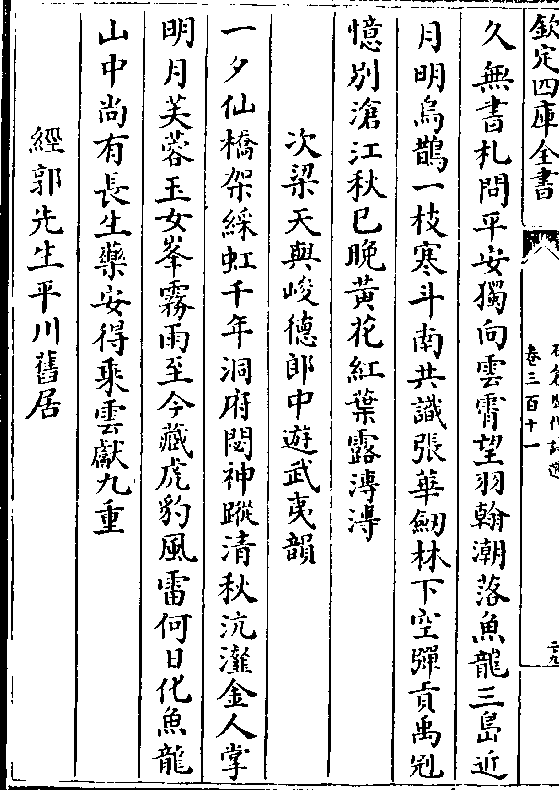 欽定四庫全書
卷三百十一
久無書札問平安獨向雲霄望羽翰潮落魚龍三島近
月明烏鵲一枝寒斗南共識張華劒林下空彈貢禹冠
憶別滄江秋已晚黃花紅葉露漙漙
次梁天與峻德郎中遊武夷韻
一夕仙橋架綵虹千年洞府閟神蹤清秋沆瀣金人掌
明月芙蓉玉女峯霧雨至今藏虎豹風雷何日化魚龍
山中尚有長生藥安得乘雲獻九重
經郭先生平川舊居